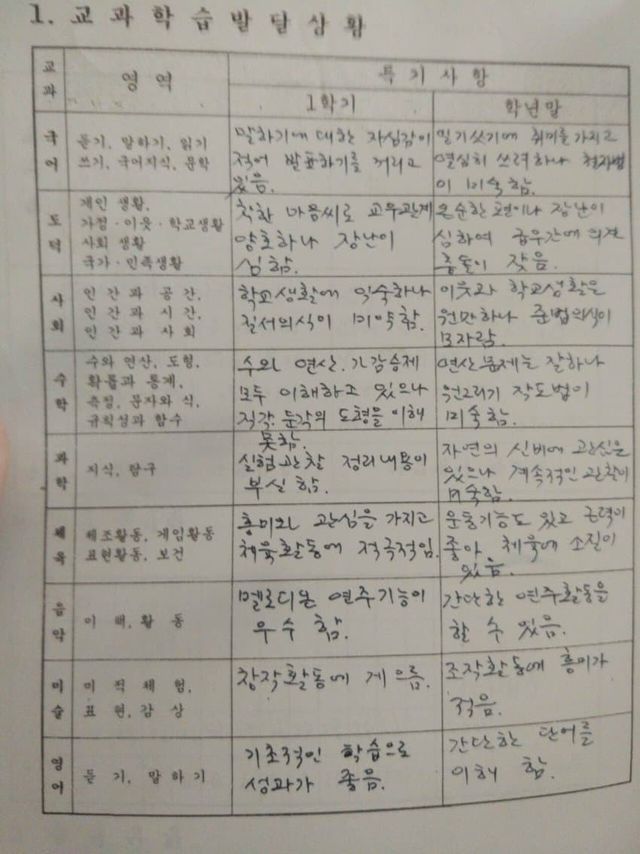 1. 교과학습발달상황
교과
영역
특기사항
1학기
학년말
국어
듣기, 말하기, 읽기
쓰기, 국어지식, 문학
말하기에 대한 자심감이
적어 발표하기를 꺼리고
있음.
일기쓰기에 취미를 가지고
열심히 쓰려하나 철자법
이 미숙함.
도덕
개인 생활,
가정·이웃·학교생활
사회 생활
국가·민족생활
착한 마음씨로 교우관계
양호하나 장난이
심함.
온순한 편이나 장난이
심하여 급우간에 의견
충돌이 잦음.
사회
인간과 공간,
인간과 시간,
인간과 사회
학교생활에 익숙하나
질서의식이 미약함.
이웃과 학교생활은
원만하나 준법의식이
모자람.
수학
수와 연산, 도형,
확률과 통계,
측정, 문자와 식,
규칙성과 함수
수와 연산, 가감승제
모두 이해하고 있으나
직각 둔각의 도형을 이해
못함.
연산문제는 잘하나
원그리기 작도법이
미숙함.
과학
지식, 탐구
실험관찰 정리내용이
부실함.
자연의 신비에 관심은
있으나 계속적인 관찰이
미숙함.
체육
체조활동, 게임활동
표현활동, 보건
흥미와 관심을 가지고
체육활동에 적극적임.
운동기능도 있고 근력이
좋아 체육에 소질이
있음.
음악
이해, 활동
멜로디온 연주기능이
우수함.
간단한 연주활동을
할 수 있음.
미술
미적체험,
표현, 감상
창작활동에 게으름.
조작활동에 흥미가
적음.
영어
듣기, 말하기
기초적인 학습으로
성과가 좋음.
간단한 단어를
이해 함.